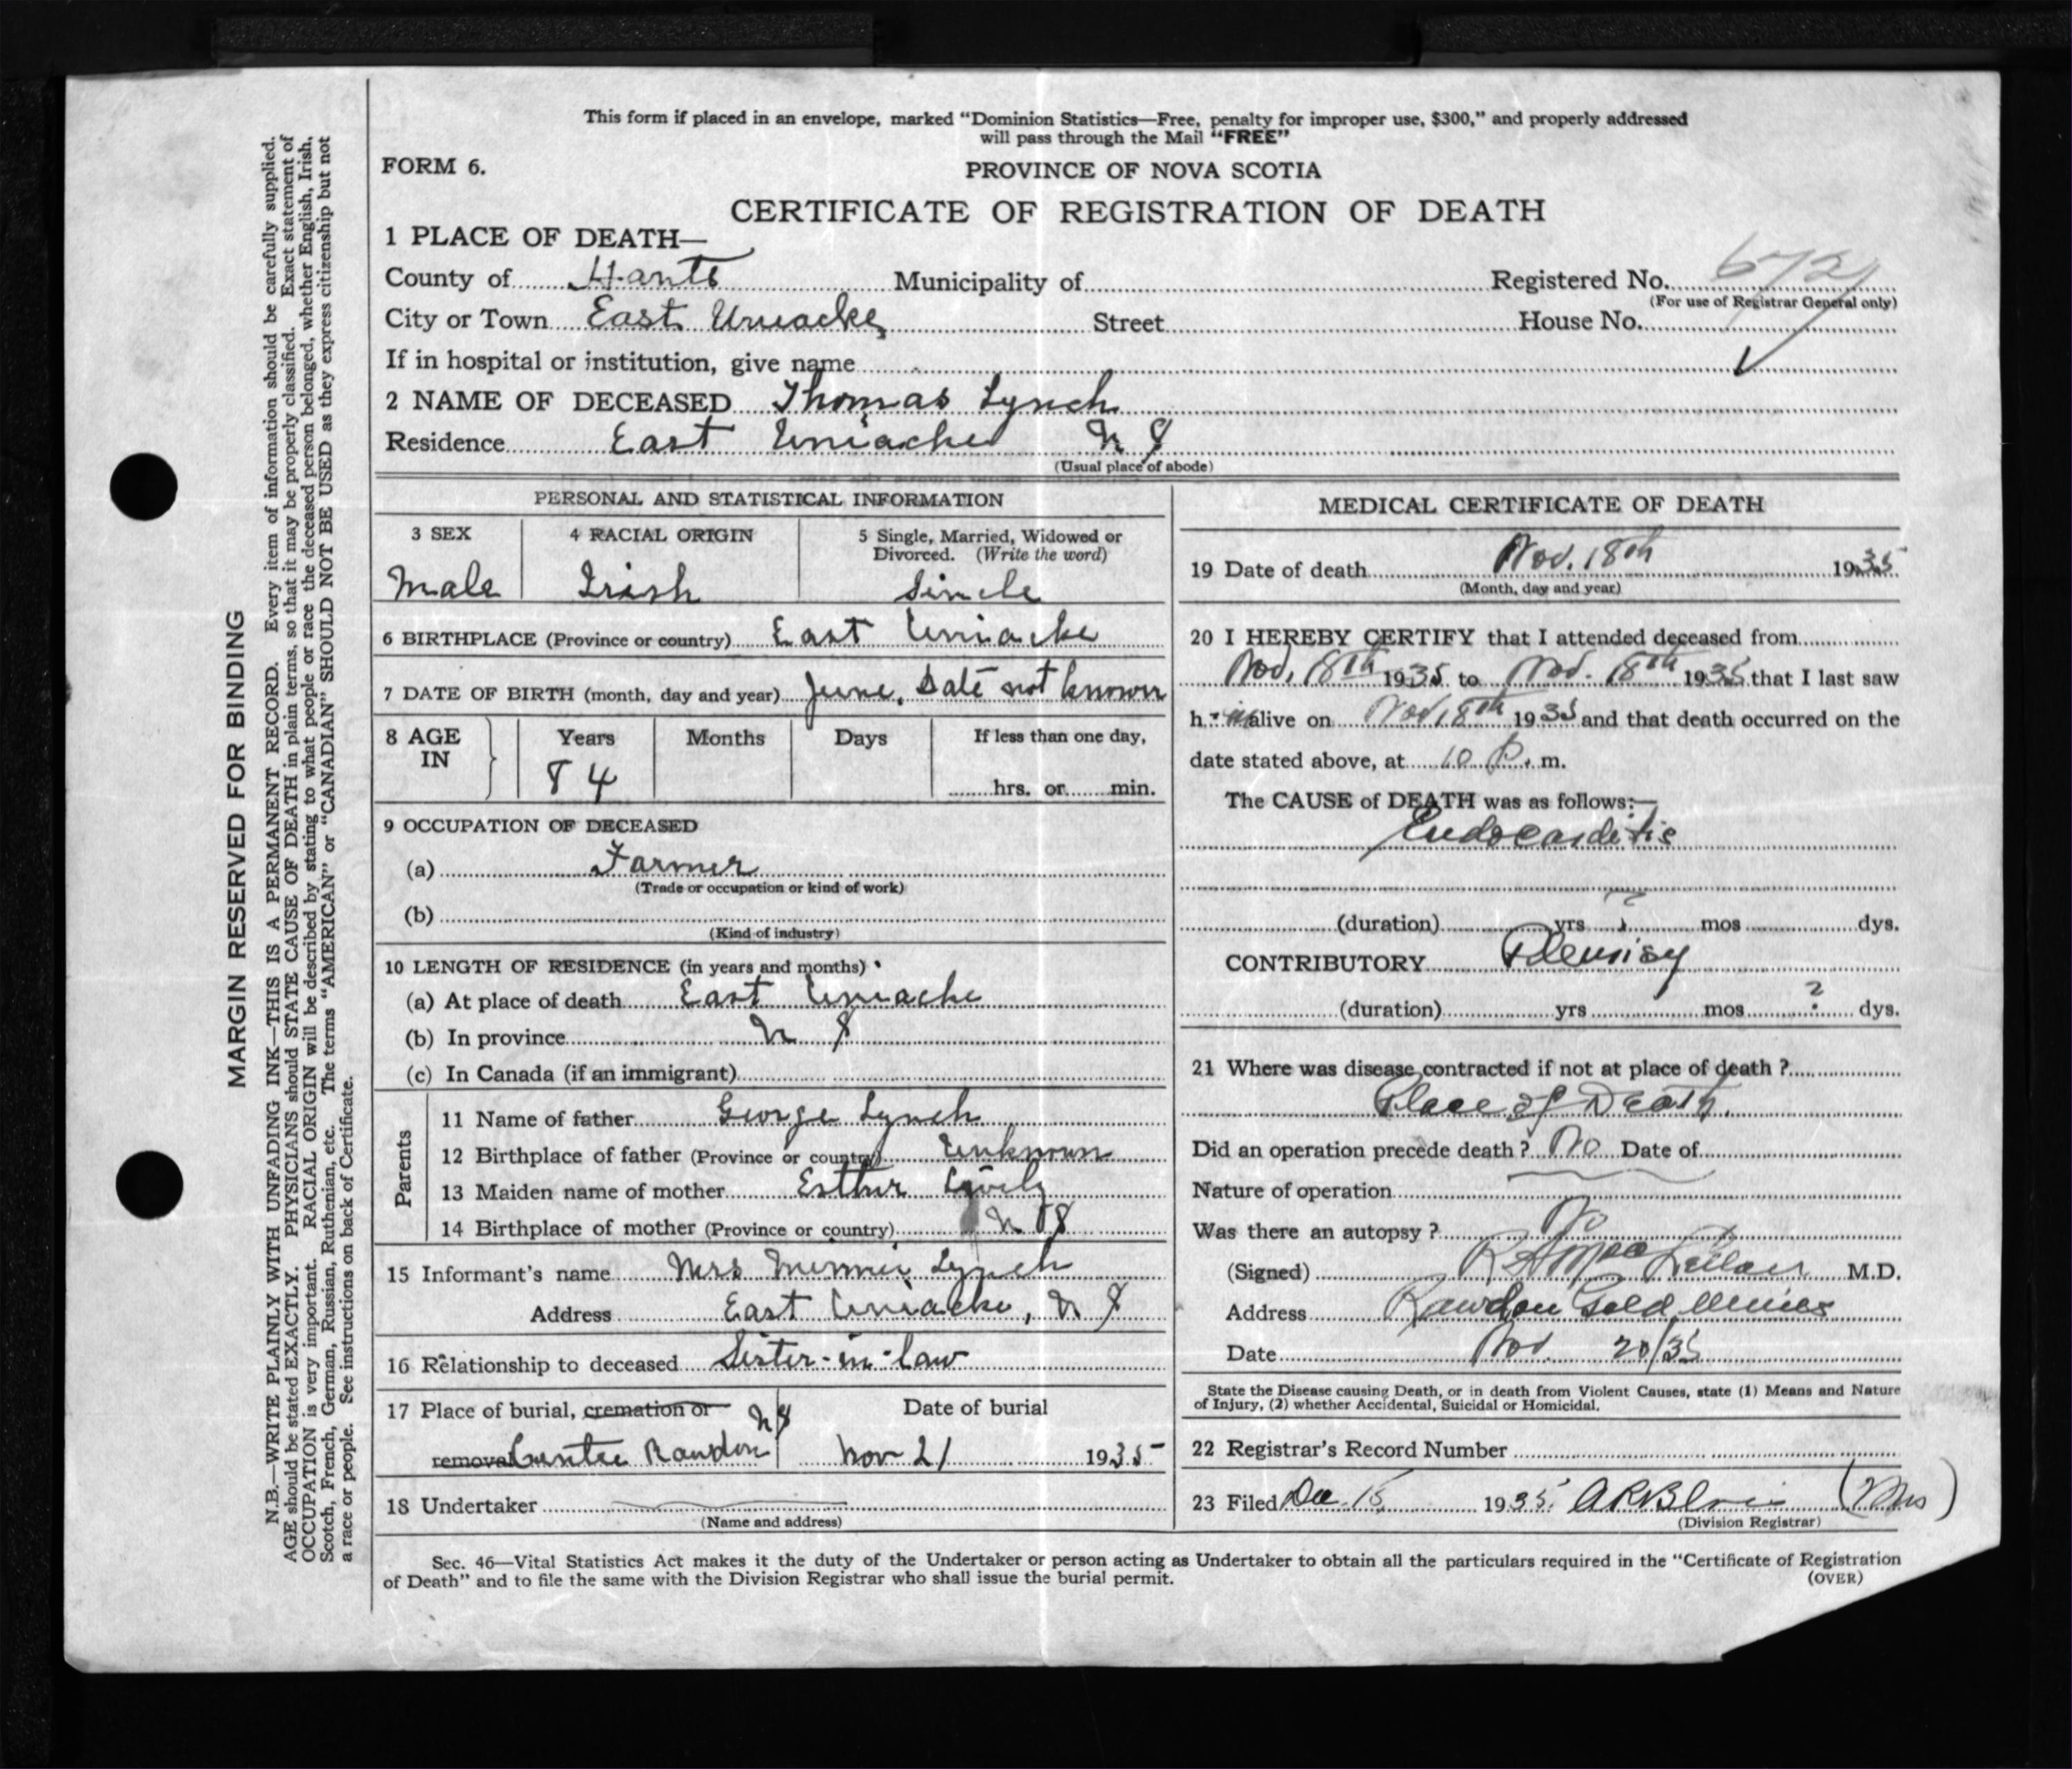 This form if placed in an envelope, marked "Dominion Statistics—Free, penalty for improper use, $300," and properly addressed
will pass through the Mail "FREE"
FORM 6.
PROVINCE OF NOVA SCOTIA
CERTIFICATE OF REGISTRATION OF DEATH
1 PLACE OF DEATH—
County of Hants Municipality of Registered No. 6721
(For use of Registrar General only)
City or Town East Uniacke Street House No.
If in hospital or institution, give name
2 NAME OF DECEASED Thomas Lynch
Residence East Uniacke N S
(Usual place of abode)
PERSONAL AND STATISTICAL INFORMATION
3 SEX
Male
4 RACIAL ORIGIN
Irish
5 Single, Married, Widowed or
Divorced. (Write the word)
Sincle
6 BIRTHPLACE (Province or country) East Uniacke
7 DATE OF BIRTH (month, day and year) June, Date not known
8 AGE IN
Years Months Days If less than one day,
84 hrs. or min.
9 OCCUPATION OF DECEASED
(a) Farmer
(Trade or occupation or kind of work)
(b)
(Kind of industry)
10 LENGTH OF RESIDENCE (in years and months)
(a) At place of death East Uniacke
(b) In province N S
(c) In Canada (if an immigrant)
Parents
11 Name of father George Lynch
12 Birthplace of father (Province or country) Unknown
13 Maiden name of mother Esther
14 Birthplace of mother (Province or country) N S
15 Informant's name Mrs Minnie Lynch
Address East Uniacke, N S
16 Relationship to deceased Sister-in-law
17 Place of burial, cremation or N S Date of burial
removal Centre Rawdon Nov 21 1935
18 Undertaker
(Name and address)
MEDICAL CERTIFICATE OF DEATH
19 Date of death Nov. 18th 1935
(Month, day and year)
20 I HEREBY CERTIFY that I attended deceased from
Nov. 18th 1935 to Nov. 18th 1935 that I last saw
h im alive on Nov 18th 1935 and that death occurred on the
date stated above, at 10 P. m.
The CAUSE of DEATH was as follows:—
Endocarditis
(duration) yrs ? mos dys.
CONTRIBUTORY Pleurisy
(duration) yrs mos ? dys.
21 Where was disease contracted if not at place of death ?
Place of Death.
Did an operation precede death ? No Date of
Nature of operation
Was there an autopsy ? No
(Signed) R A MacLellan M.D.
Address Rawdon Gold Mines
Date Nov 20/35
State the Disease causing Death, or in death from Violent Causes, state (1) Means and Nature
of Injury, (2) whether Accidental, Suicidal or Homicidal.
22 Registrar's Record Number
23 Filed Dec 15 1935 (Mrs)
(Division Registrar)
Sec. 46—Vital Statistics Act makes it the duty of the Undertaker or person acting as Undertaker to obtain all the particulars required in the "Certificate of Registration
of Death" and to file the same with the Division Registrar who shall issue the burial permit.
(OVER)
MARGIN RESERVED FOR BINDING
N.B.—WRITE PLAINLY WITH UNFADING INK—THIS IS A PERMANENT RECORD. Every item of information should be carefully supplied.
AGE should be stated EXACTLY. PHYSICIANS should STATE CAUSE OF DEATH in plain terms, so that it may be properly classified. Exact statement of
OCCUPATION is very important. RACIAL ORIGIN will be described by stating to what people or race the deceased person belonged, whether English, Irish,
Scotch, French, German, Russian, Ruthenian, etc. The terms "AMERICAN" or "CANADIAN" SHOULD NOT BE USED as they express citizenship but not
a race or people. See instructions on back of Certificate.